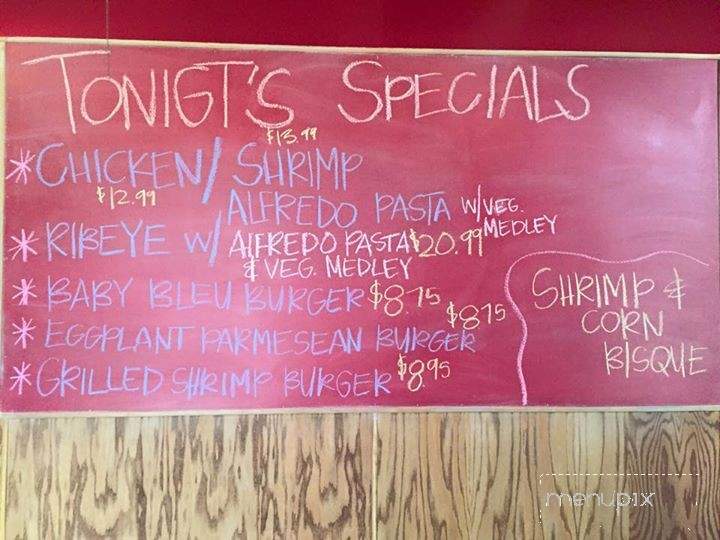 TONIGT'S SPECIALS
$13.99
*CHICKEN/ SHRIMP
$12.99
ALFREDO PASTA W/VEG. MEDLEY
*RIBEYE W/ ALFREDO PASTA $20.99
& VEG. MEDLEY
*BABY BLEU BURGER $8.75
$8.75
*EGGPLANT PARMESEAN BURGER
*GRILLED SHRIMP BURGER $8.95
SHRIMP &
CORN
BISQUE
menupix